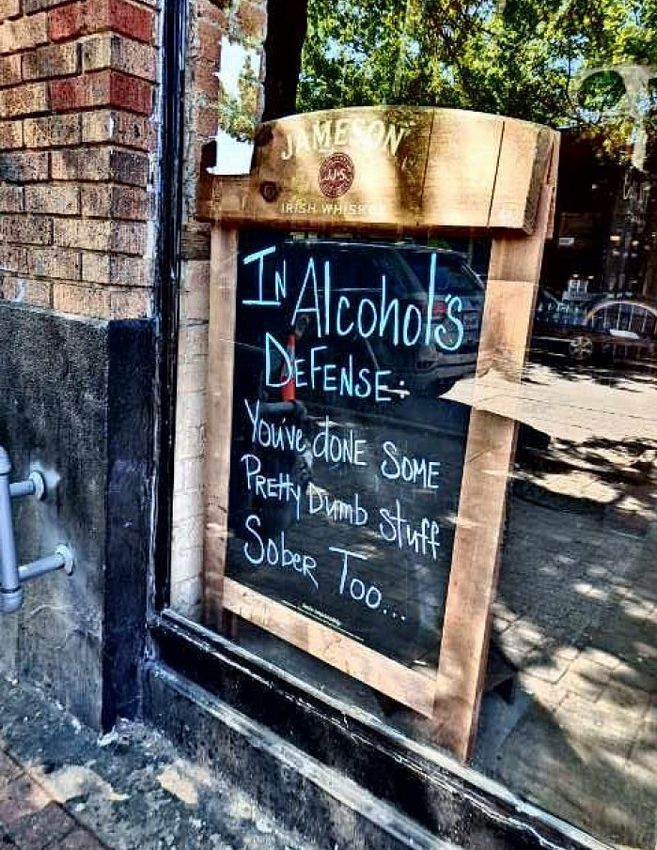 JAMESON
J.J&S
IRISH WHISKEY
In Alcohol's
Defense:
You've done some
Pretty Dumb Stuff
Sober Too...